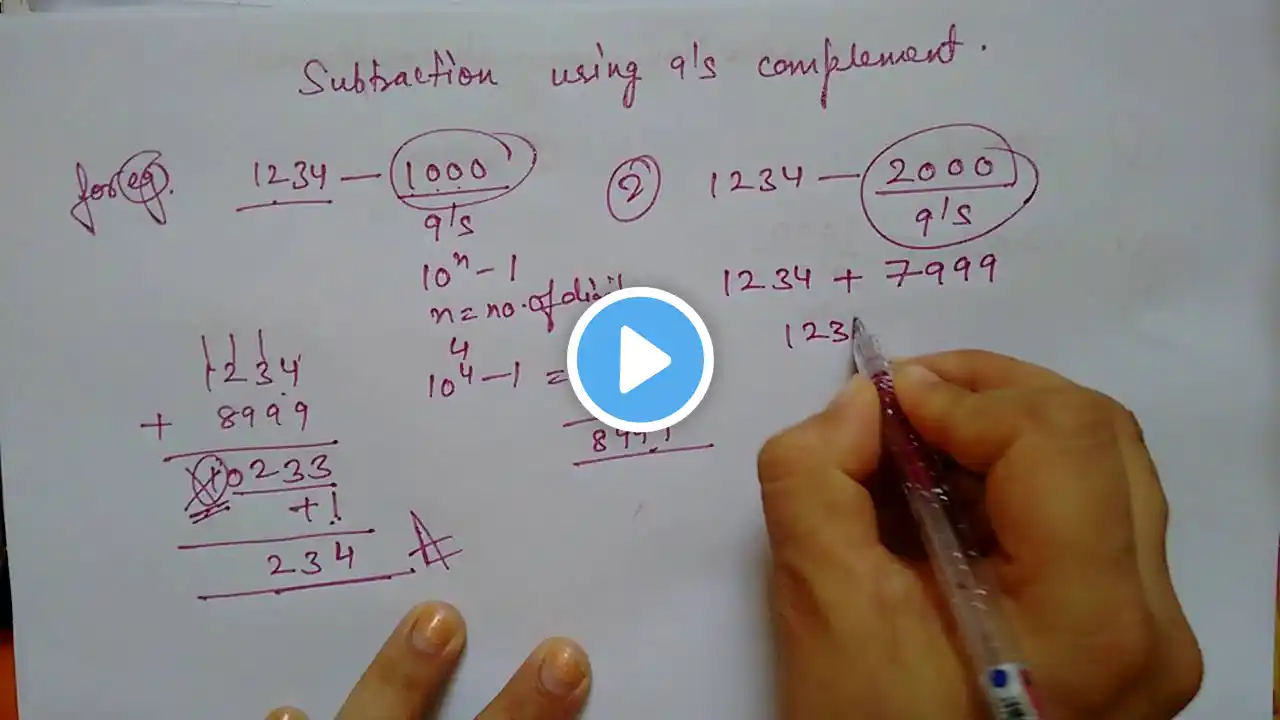 Subtraction using 9's complement.
for eg. 1234 — 1000
9's
10ⁿ - 1
n = no. of digit
4
10⁴ - 1 =
8991
1234
+ 8999
10233
+1
234
② 1234 — 2000
9's
1234 + 7999
123